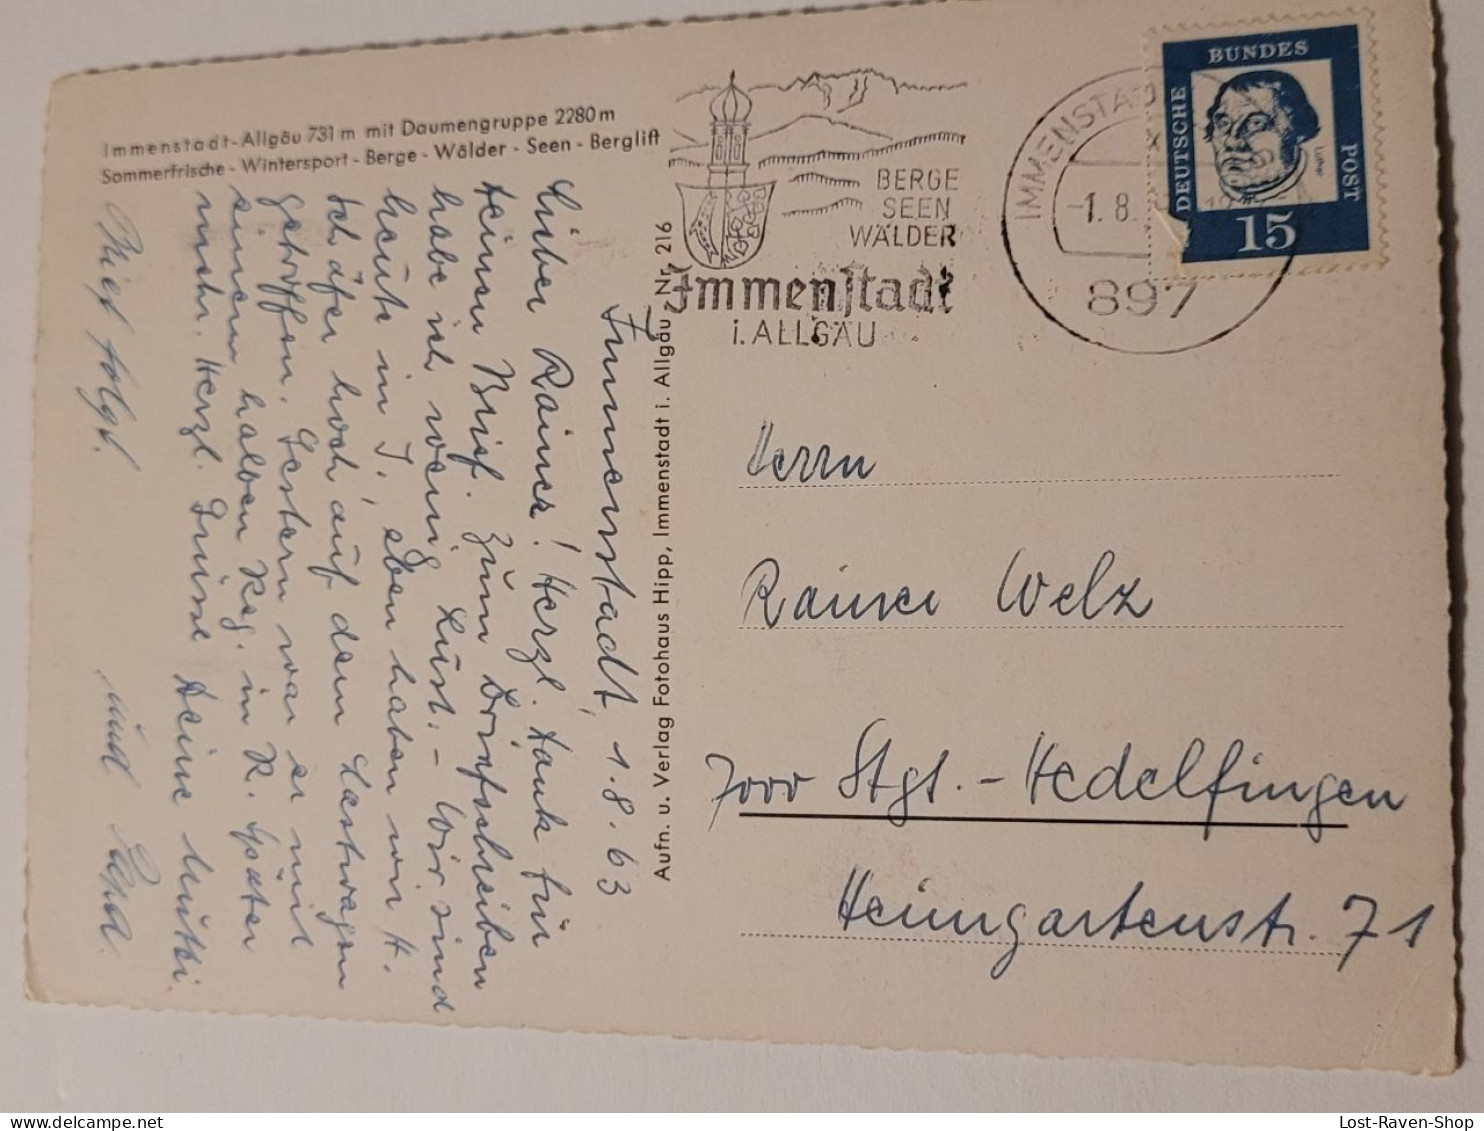 Immenstadt-Allgäu 731 m mit Daumengruppe 2280 m
Sommerfrische - Wintersport - Berge - Wälder - Seen - Berglift
Immenstadt, 1.8.63
Lieber Rainer! Herzl. Dank für
Deinen Brief. Zum Briefschreiben
habe ich wenig Lust. - Wir sind
heute in I., eben haben wir H.
hoch auf dem Lastwagen
getroffen. Gestern war er mit
einem halben Kg. in K. Später
mehr. Herzl. Grüsse Deine Mutti
Brief folgt. und Papa.
Aufn. u. Verlag Fotohaus Hipp, Immenstadt i. Allgäu - Nr. 216
BERGE
SEEN
WÄLDER
Immenstadt
i. ALLGÄU
IMMENSTADT
-1.8.
897
DEUTSCHE
BUNDES
POST
Luther
15
Herrn
Rainer Welz
7000 Stgt. - Hedelfingen
Heumgartenstr. 71
Lost-Raven-Shop